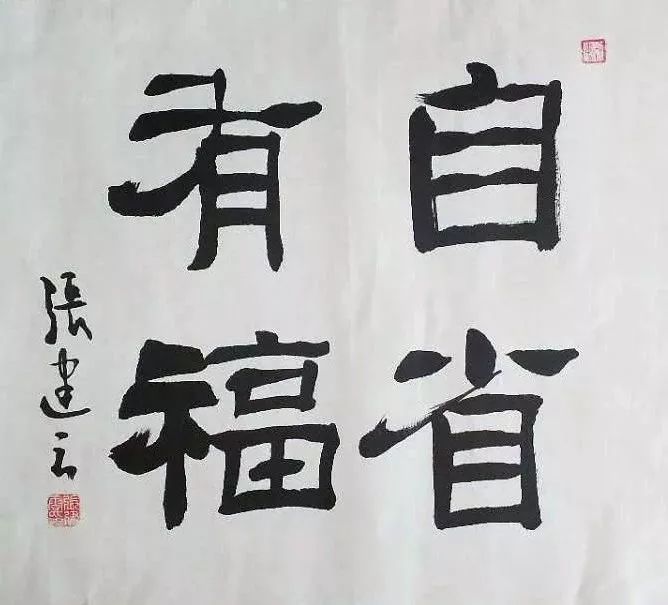 自省
有福
張建云